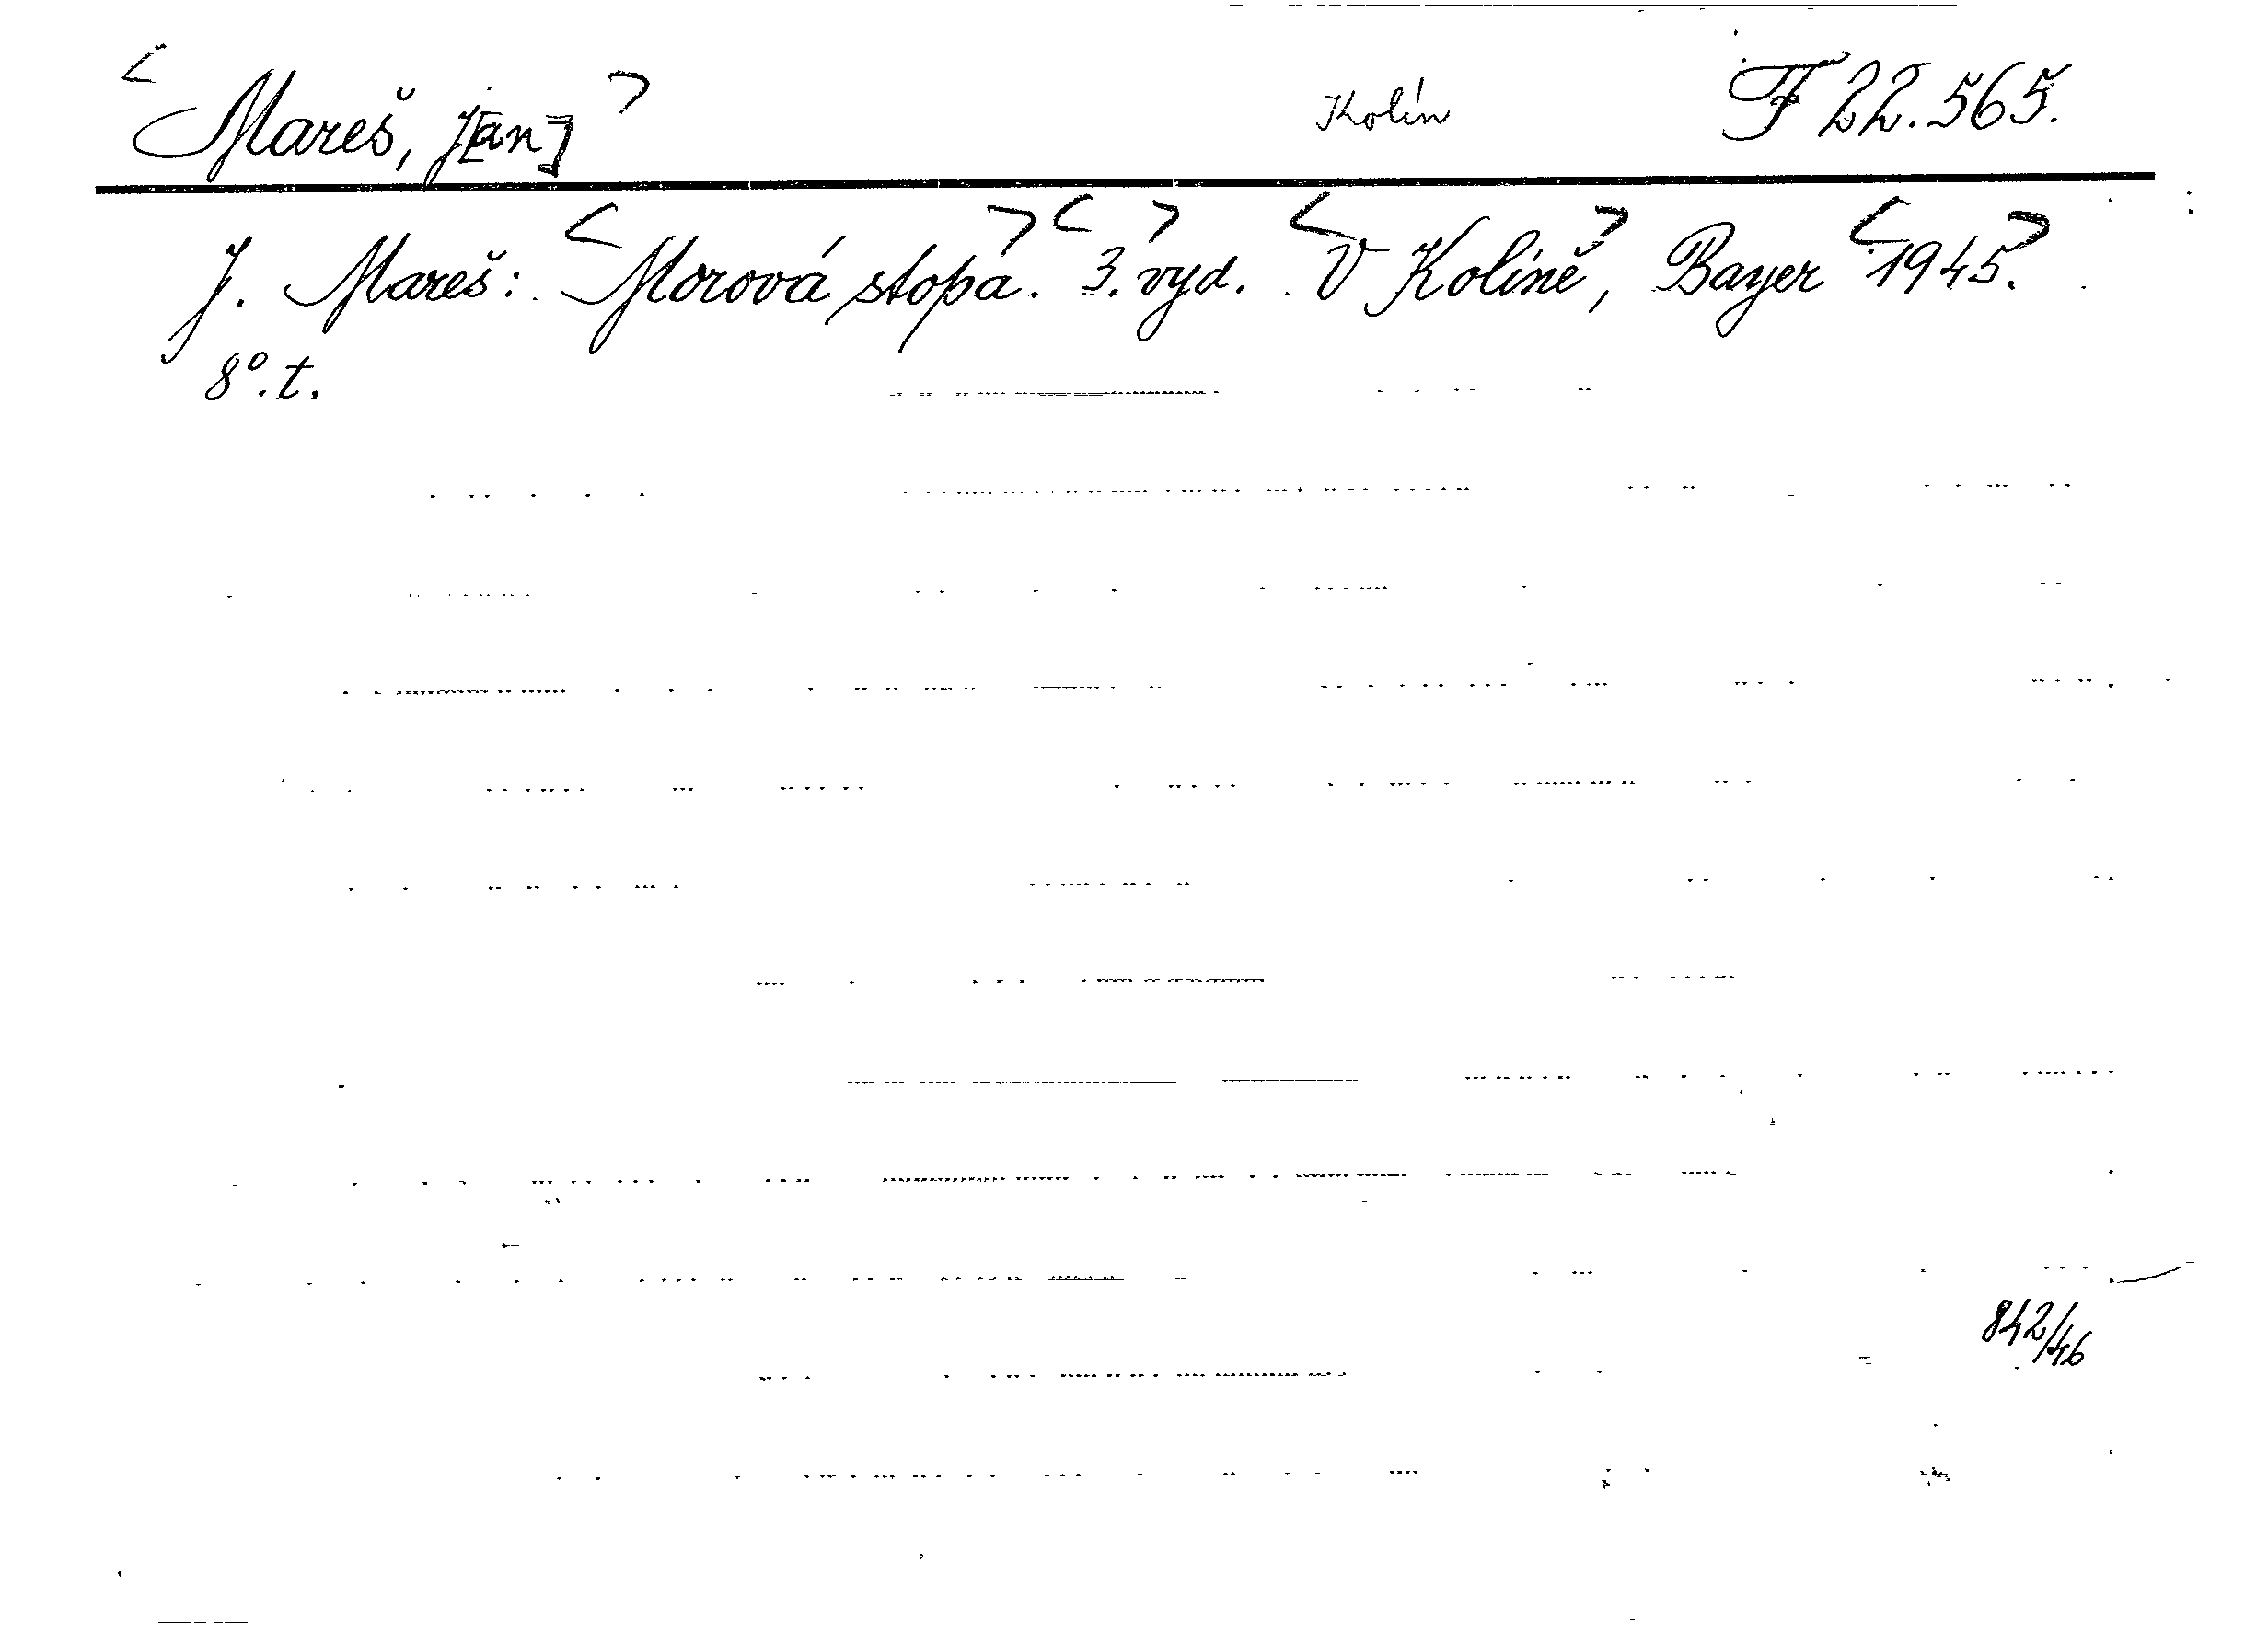 <Mareš, J[an]> Kolín F 22.565.
J. Mareš: <Morová stopa.> <3.> vyd. <V Kolíně>, Bayer <1945.>
8°. t.
842/46